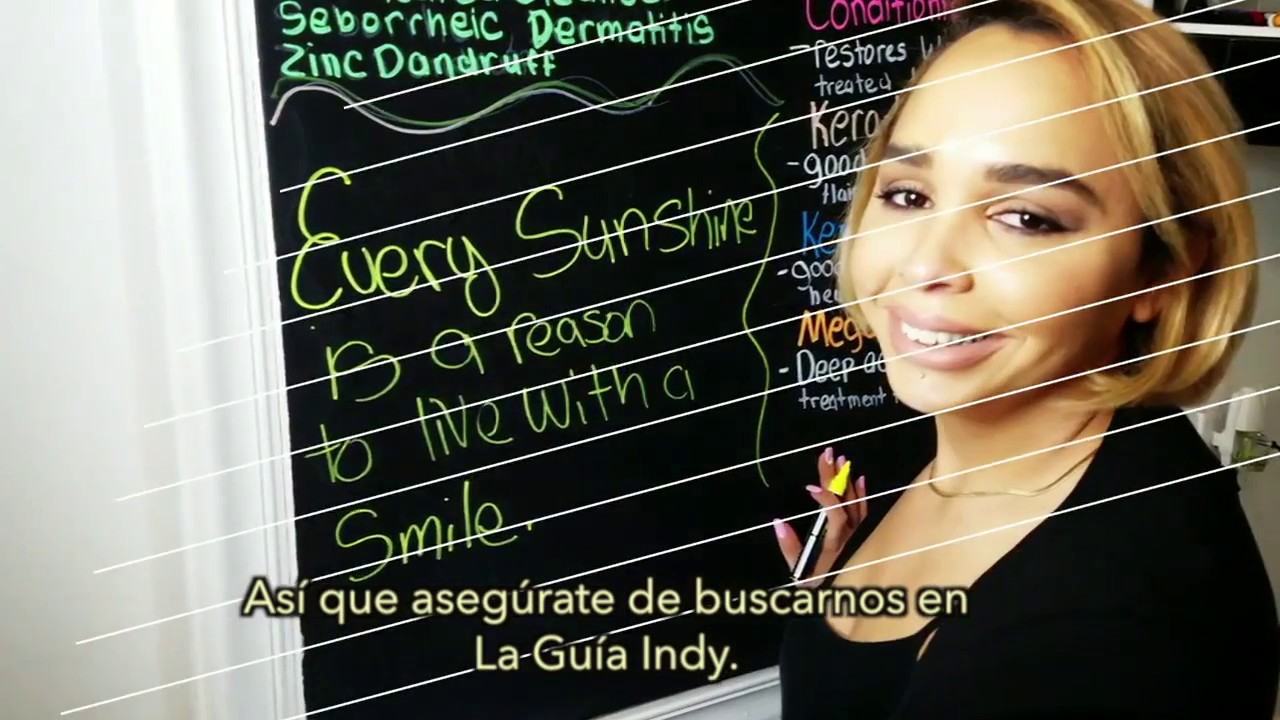 Seborrheic Dermatitis
Zinc Dandruff
Every Sunshine
is a reason
to live with a
Smile.
-restores
treated
-good
-good
-Deep
treatment
Así que asegúrate de buscarnos en
La Guía Indy.